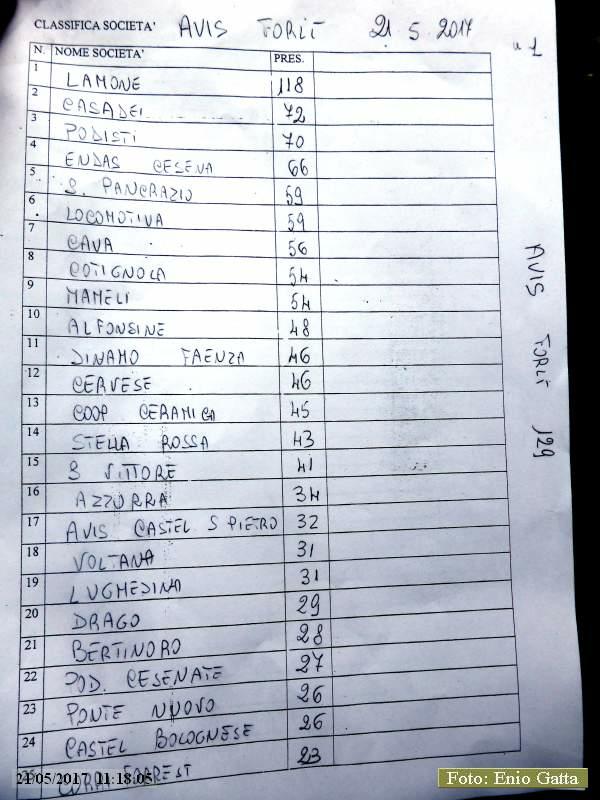 CLASSIFICA SOCIETA' AVIS FORLI 21 5 2017
N. NOME SOCIETA' PRES.
1 LAMONE 118
2 CASADEI 72
3 PODISTI 70
4 ENDAS CESENA 66
5 S. PANCRAZIO 59
6 LOCOMOTIVA 59
7 CAVA 56
8 COTIGNOLA 54
9 MAMELI 54
10 ALFONSINE 48
11 DINAMO FAENZA 46
12 CERVESE 46
13 COOP CERAMICA 45
14 STELLA ROSSA 43
15 S VITTORE 41
16 AZZURRA 34
17 AVIS CASTEL S PIETRO 32
18 VOLTANA 31
19 LUGHESINA 31
20 DRAGO 29
21 BERTINORO 28
22 POD. CESENATE 27
23 PONTE NUOVO 26
24 CASTEL BOLOGNESE 26
25 FORREST 23
n 1
AVIS FORLI 129
21/05/2017 11:18:05
Foto: Enio Gatta